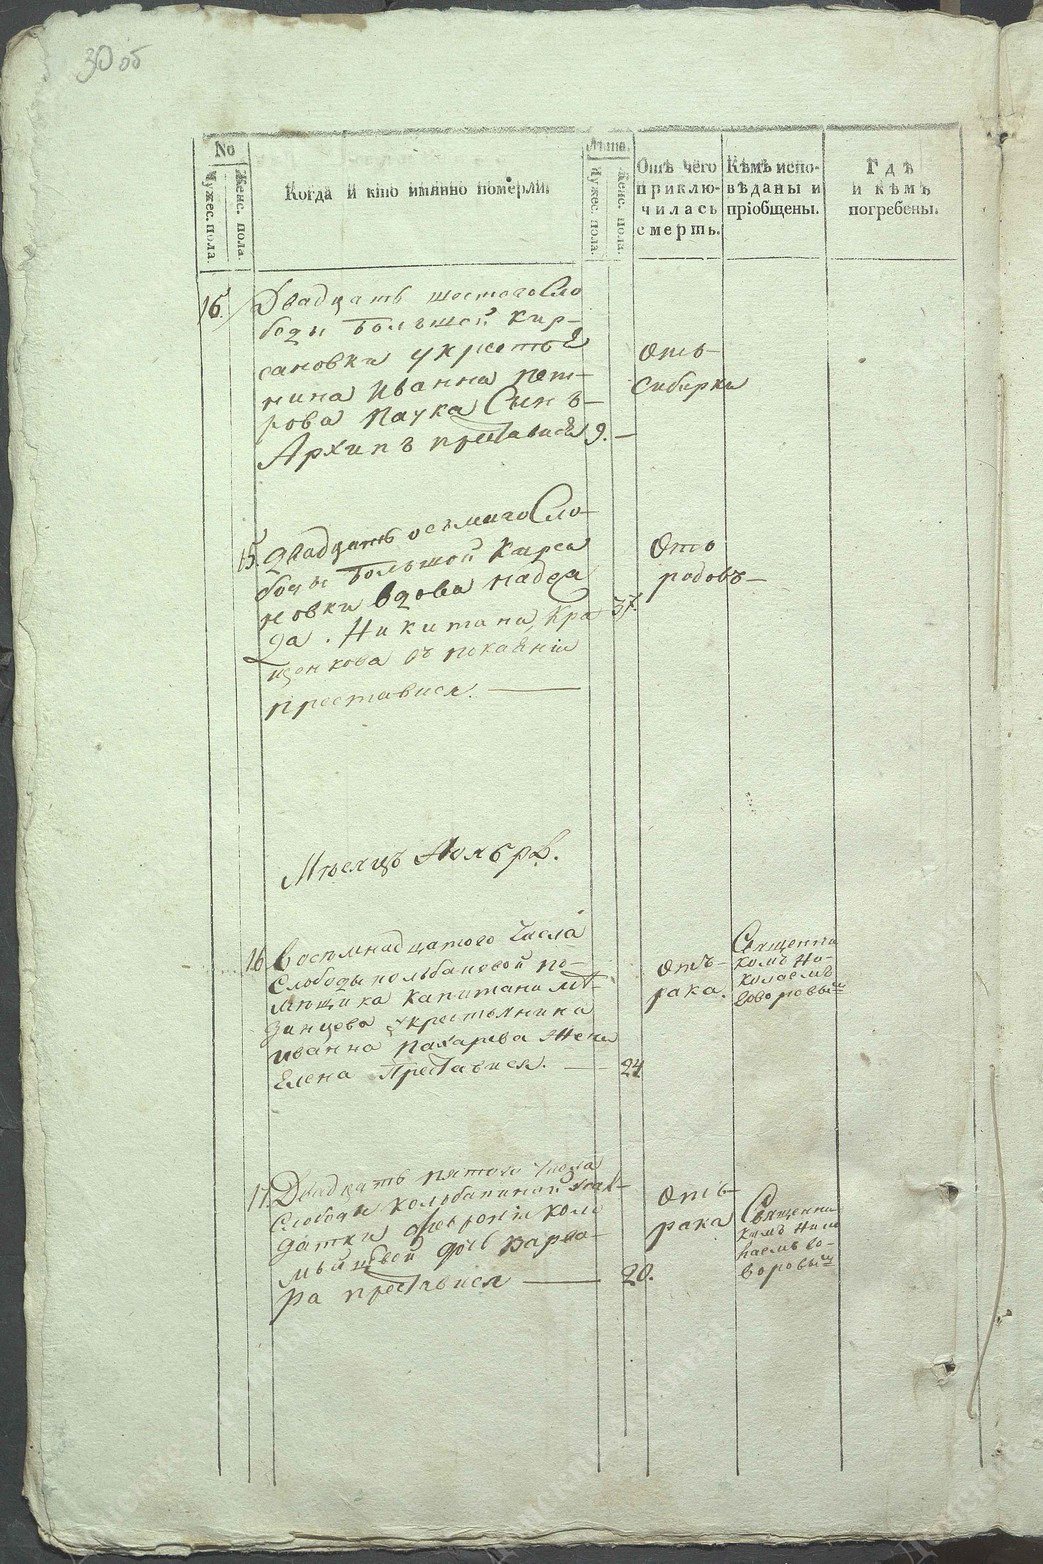 30 об
No
Мужес. пола.
Женс. пола.
Когда и кто имянно померли.
Лѣта.
Мужес. пола.
Женс. пола.
Отъ чего
приклю-
чилась
смерть.
Кѣмъ испо-
вѣданы и
пріобщены.
Гдѣ
и кѣмъ
погребены.
16. Двадцать шестого Сло
боды Большой Кир-
сановки у крестья
нина Иванна Пет-
рова Паука Сынъ
Архипъ преставися 9. —
Отъ
Сибирки
15. Двадцать осьмаго Сло-
боды Большой Кирса
новки вдова Надеж
да Никитина Кра 37.
щенкова въ покаяніи
преставися. —
Отъ
родовъ —
Мѣсяцъ Ноябрь.
16 Восемнадцатого Числа
Слободы Кольбановой по-
мѣщика Капитана
у крестьянина
Иванна Пахарева Жена
Елена Преставися. — 24
Отъ
рака.
Священни
комъ Ни-
колаемъ
Говоровым
17. Двадцать пятого числа
Слободы
датки
дочь Варва-
ра преставися — 20.
Отъ
рака
Священни
комъ Нико
лаемъ Го-
воровым